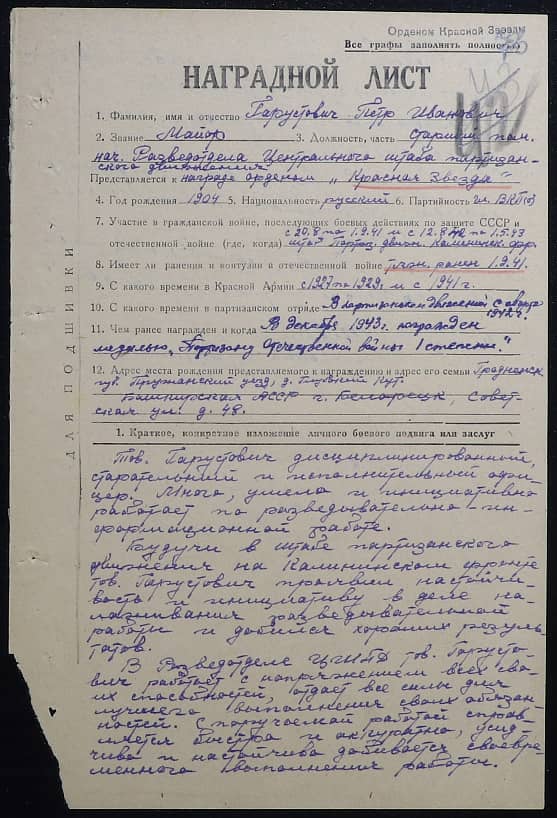 Орденом Красной Звезды
Все графы заполнять полностью
НАГРАДНОЙ ЛИСТ
1. Фамилия, имя и отчество Гарустович Петр Иванович
2. Звание Майор 3. Должность, часть старший пом.
нач. Разведотдела Центрального штаба партизан-
ского движения.
Представляется к награде орденом „Красная Звезда"
4. Год рождения 1904 5. Национальность русский 6. Партийность чл. ВКП(б)
7. Участие в гражданской войне, последующих боевых действиях по защите СССР и
с 20.8 по 1.9.41 и с 12.8.42 по 1.5.43
отечественной войне (где, когда) штаб Партиз. движ. Калининск. фр.
8. Имеет ли ранения и контузии в отечественной войне ранен 1.9.41.
9. С какого времени в Красной Армии с 1927 по 1929 и с 1941 г.
10. С какого времени в партизанском отряде В партизанском движении с августа
1942 г.
11. Чем ранее награжден и когда В декабре 1943 г. награжден
медалью „Партизану Отечественной войны 1 степени."
12. Адрес места рождения представляемого к награждению и адрес его семьи Гродненск.
губ. Пружанский уезд, д.
Башкирская АССР г. Белорецк, Совет-
ская ул. д. 48.
ДЛЯ ПОДШИВКИ
1. Краткое, конкретное изложение личного боевого подвига или заслуг
Тов. Гарустович дисциплинированный,
старательный и исполнительный офи-
цер. Много, умело и инициативно
работает по разведывательно-ин-
формационной работе.
Будучи в штабе партизанского
движения на Калининском фронте
тов. Гарустович проявил настойчи-
вость и инициативу в деле на-
лаживания разведывательной
работы и добился хороших резуль-
татов.
В Разведотделе ЦШПД тов. Гарусто-
вич работает с напряжением всех сво-
их способностей, отдает все силы для
лучшего выполнения своих обязан-
ностей. С поручаемой работой справ-
ляется быстро и аккуратно, усид-
чиво и настойчиво добивается своевре-
менного выполнения работы.